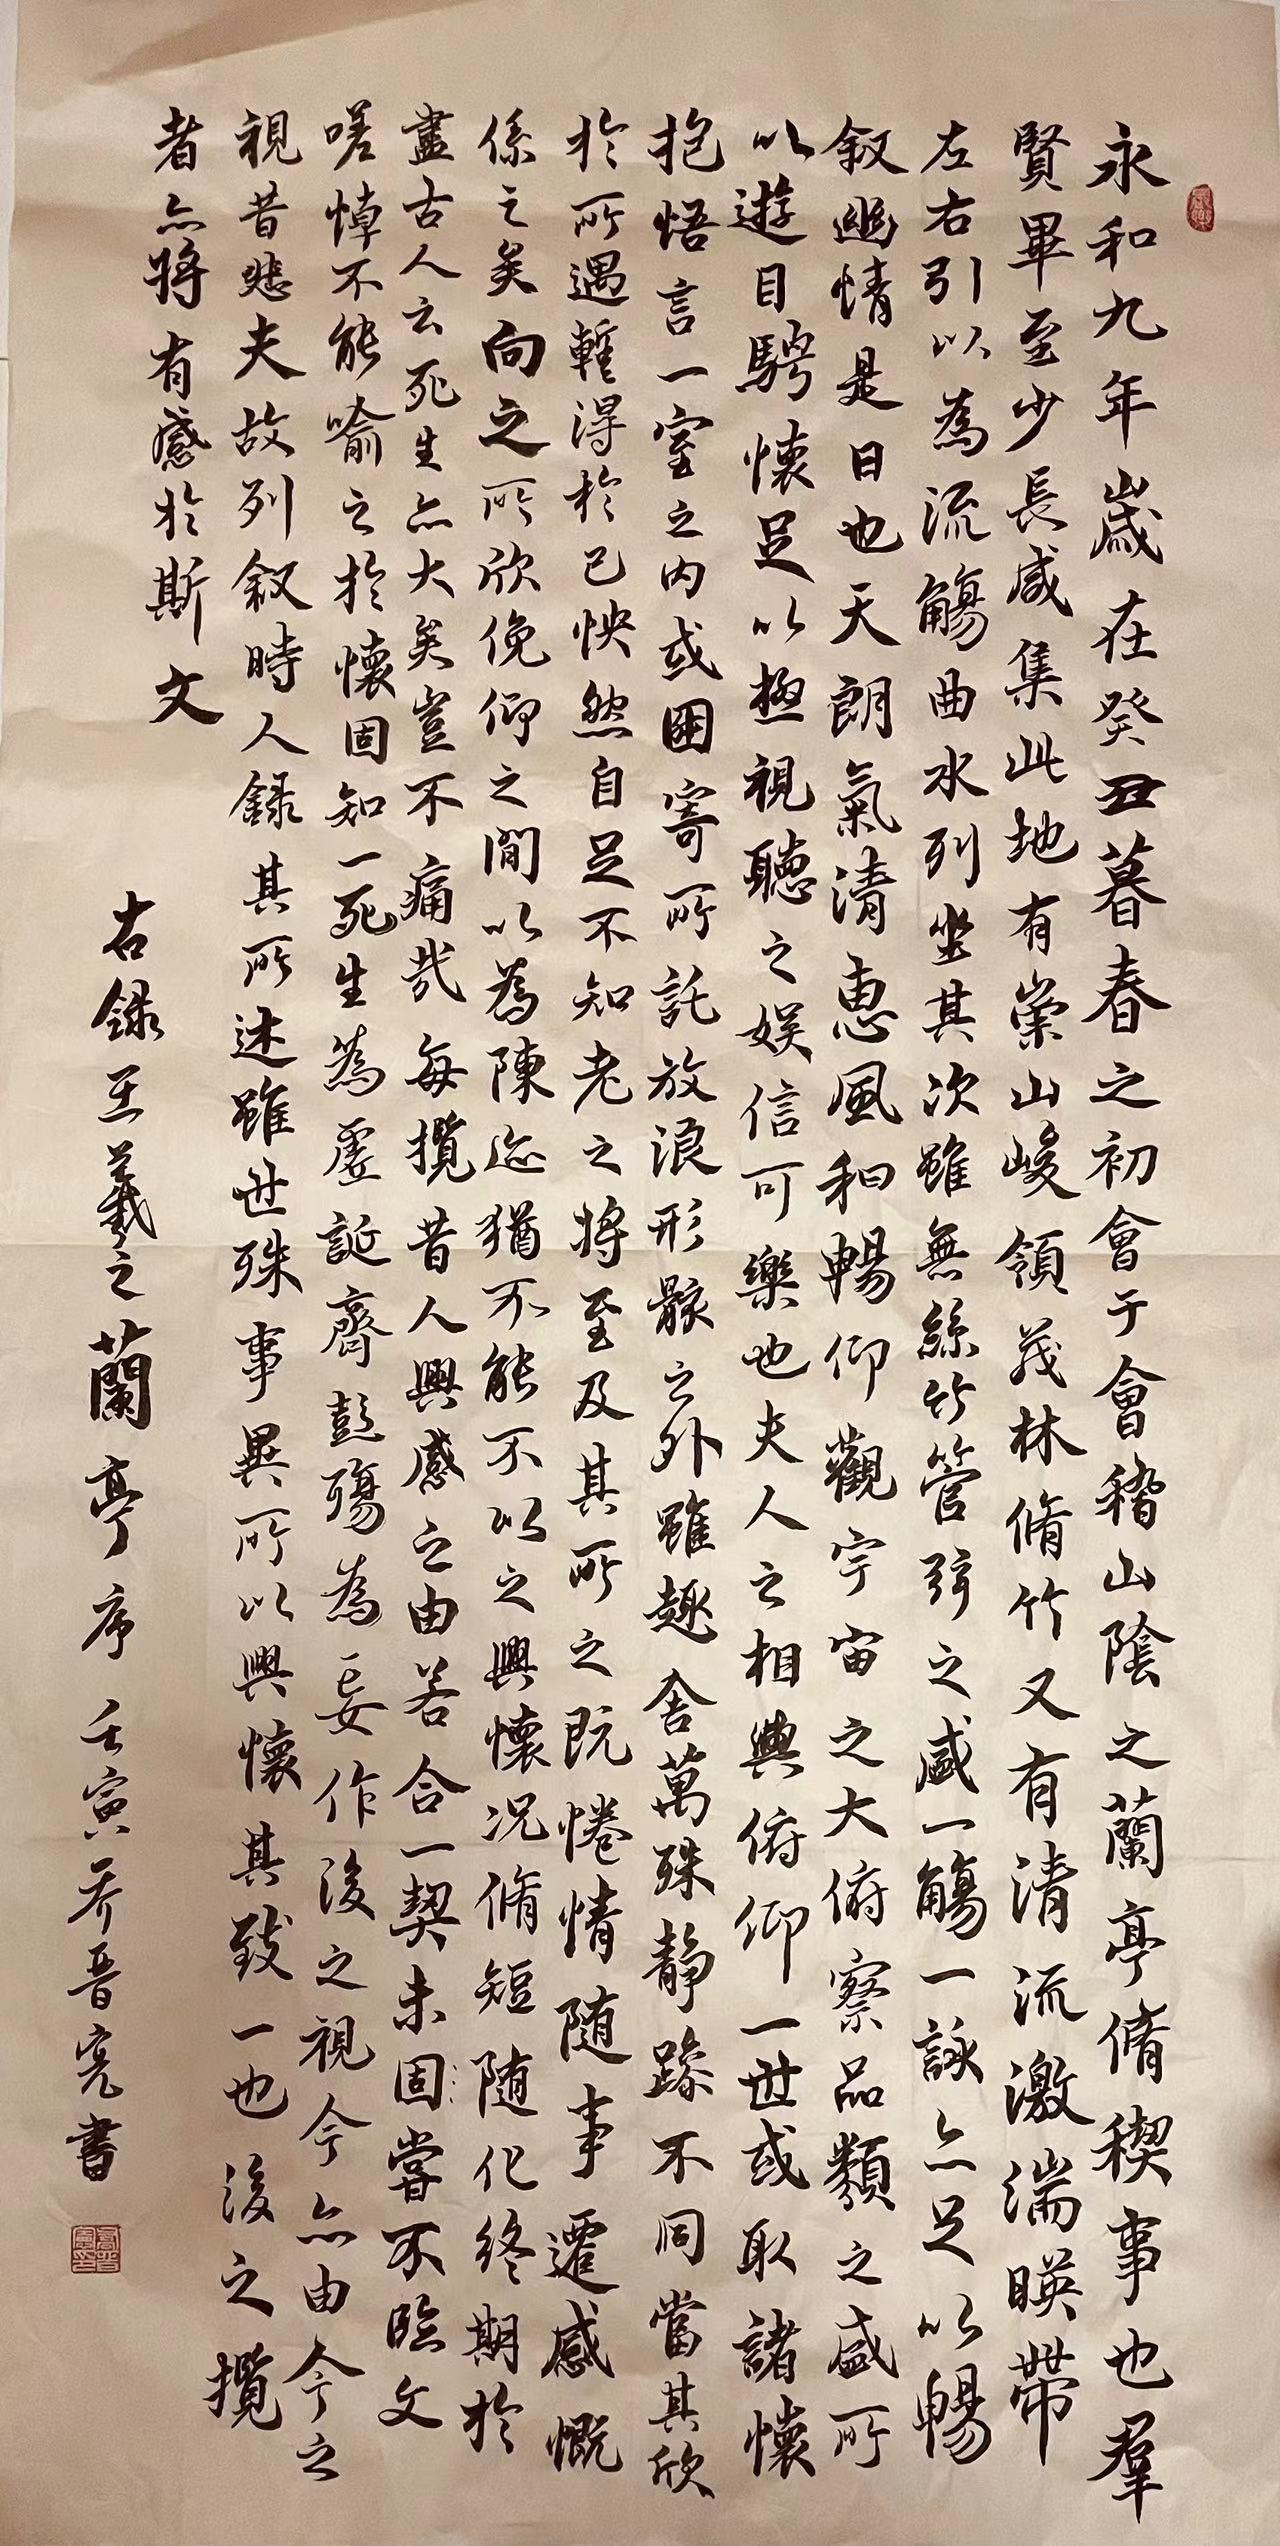 永和九年歲在癸丑暮春之初會于會稽山陰之蘭亭脩稧事也羣
賢畢至少長咸集此地有崇山峻領茂林脩竹又有清流激湍暎帶
左右引以為流觴曲水列坐其次雖無絲竹管弦之盛一觴一詠亦足以暢
叙幽情是日也天朗氣清惠風和暢仰觀宇宙之大俯察品類之盛所
以遊目騁懷足以極視聽之娛信可樂也夫人之相與俯仰一世或取諸懷
抱悟言一室之內或因寄所託放浪形骸之外雖趣舍萬殊靜躁不同當其欣
於所遇蹔得於己怏然自足不知老之將至及其所之既惓情隨事遷感慨
係之矣向之所欣俛仰之間以為陳迹猶不能不以之興懷況脩短隨化終期於
盡古人云死生亦大矣豈不痛哉每攬昔人興感之由若合一契未固嘗不臨文
嗟悼不能喻之於懷固知一死生為虛誕齊彭殤為妄作後之視今亦由今之
視昔悲夫故列叙時人錄其所述雖世殊事異所以興懷其致一也後之攬
者亦將有感於斯文
右錄王羲之蘭亭序 壬寅喬晉亮書